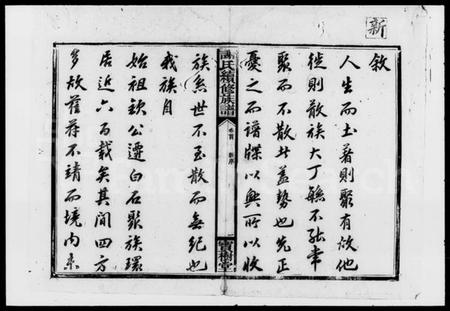 新
叙
人生而土著則聚有故他
徙則散族大丁繁不能常
聚而不散此蓋勢也先正
憂之而譜牒以興所以收
氏續修族譜
卷首
新序
一
寶樹堂
族無世不至散而無紀也
我族自
始祖欽公遷白石聚族環
居近六百載矣其間四方
多故萑苻不靖而境内未